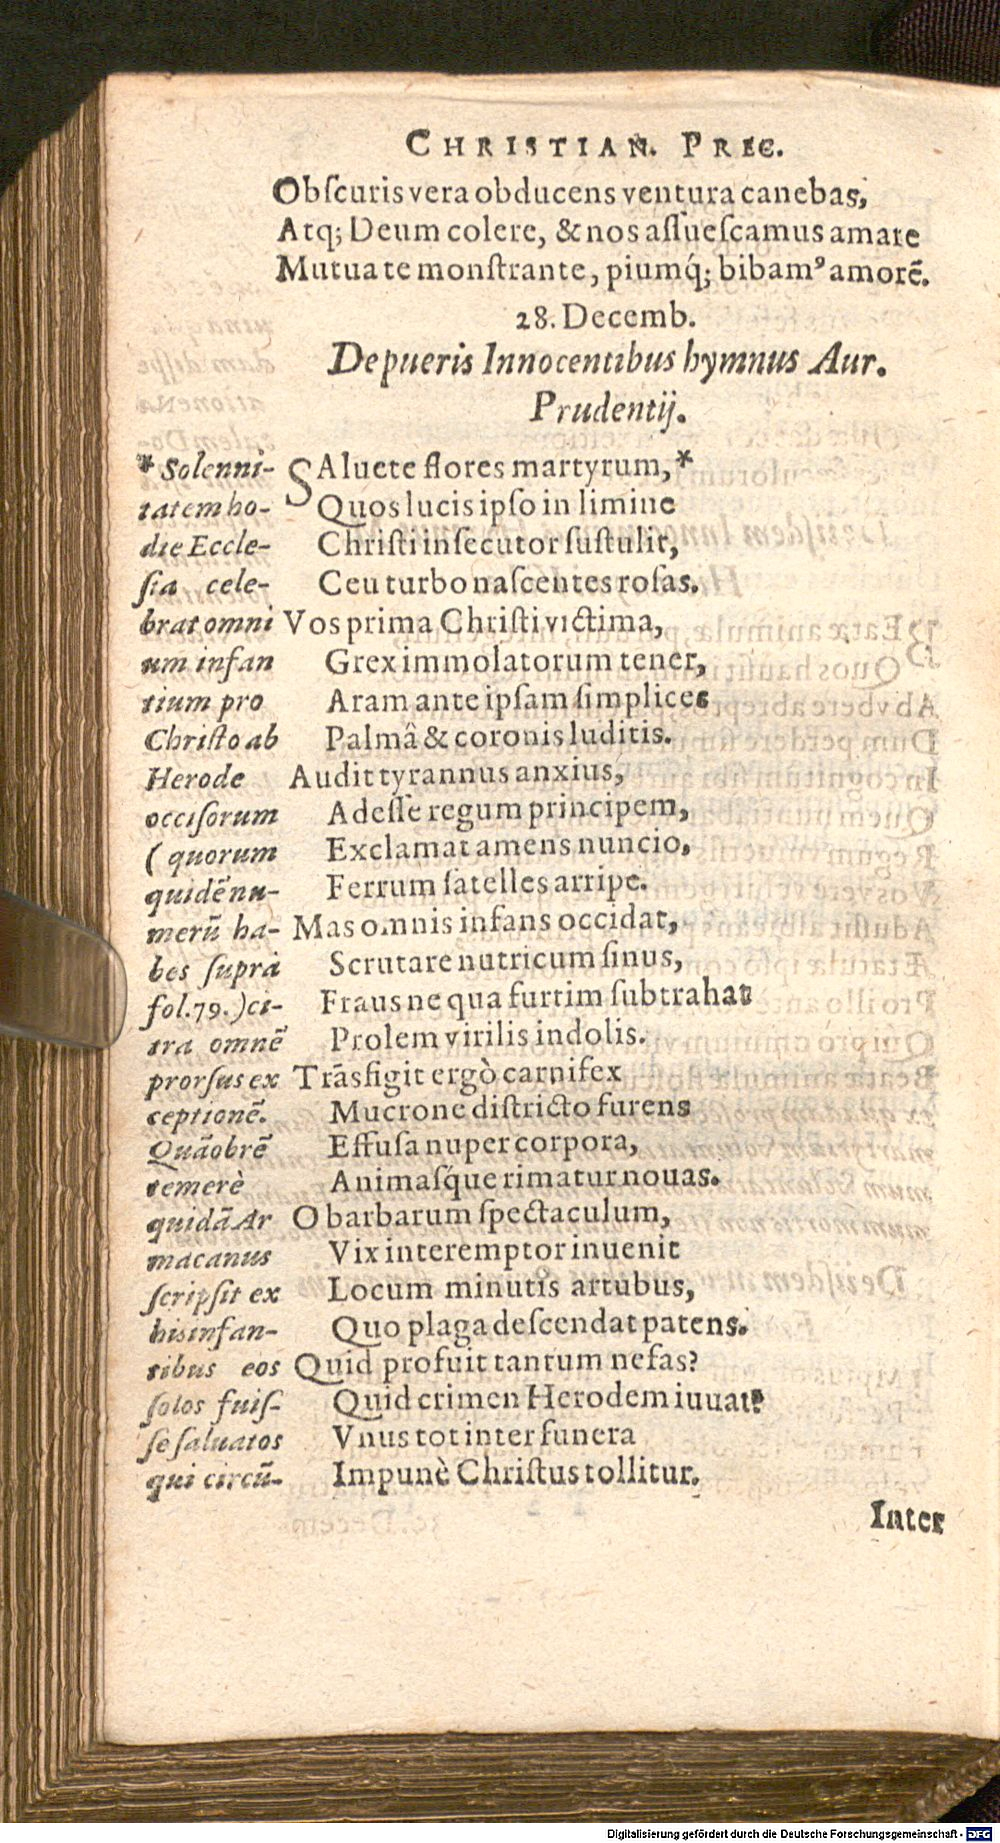 CHRISTIAN. PREC.
Obſcuris vera obducens ventura canebas,
Atq; Deum colere, & nos aſſueſcamus amare
Mutua te monſtrante, piumq́; bibam⁹ amorē.
28. Decemb.
De pueris Innocentibus hymnus Aur.
Prudentij.
SAluete flores martyrum,*
Quos lucis ipſo in limine
Chriſti inſecutor ſuſtulit,
Ceu turbo naſcentes roſas.
Vos prima Chriſti victima,
Grex immolatorum tener,
Aram ante ipſam ſimplices
Palmâ & coronis luditis.
Audit tyrannus anxius,
Adeſſe regum principem,
Exclamat amens nuncio,
Ferrum ſatelles arripe.
Mas omnis infans occidat,
Scrutare nutricum ſinus,
Fraus ne qua furtim ſubtrahat
Prolem virilis indolis.
Trāsfigit ergò carnifex
Mucrone diſtricto furens
Effuſa nuper corpora,
Animaſq́ue rimatur nouas.
O barbarum ſpectaculum,
Vix interemptor inuenit
Locum minutis artubus,
Quo plaga deſcendat patens.
Quid profuit tantum nefas?
Quid crimen Herodem iuuat?
Vnus tot inter funera
Impunè Chriſtus tollitur.
* Solenni-
tatem ho-
die Eccle-
ſia cele-
brat omni
um infan
tium pro
Chriſto ab
Herode
occiſorum
( quorum
quidē nu-
merū ha-
bes ſuprà
fol.79.) ci-
tra omnē
prorſus ex
ceptionē.
Quāobrē
temerè
quidā Ar
macanus
ſcripſit ex
his infan-
tibus eos
ſolos fuiſ-
ſe ſaluatos
qui circū-
Inter
Digitalisierung gefördert durch die Deutsche Forschungsgemeinschaft - DFG